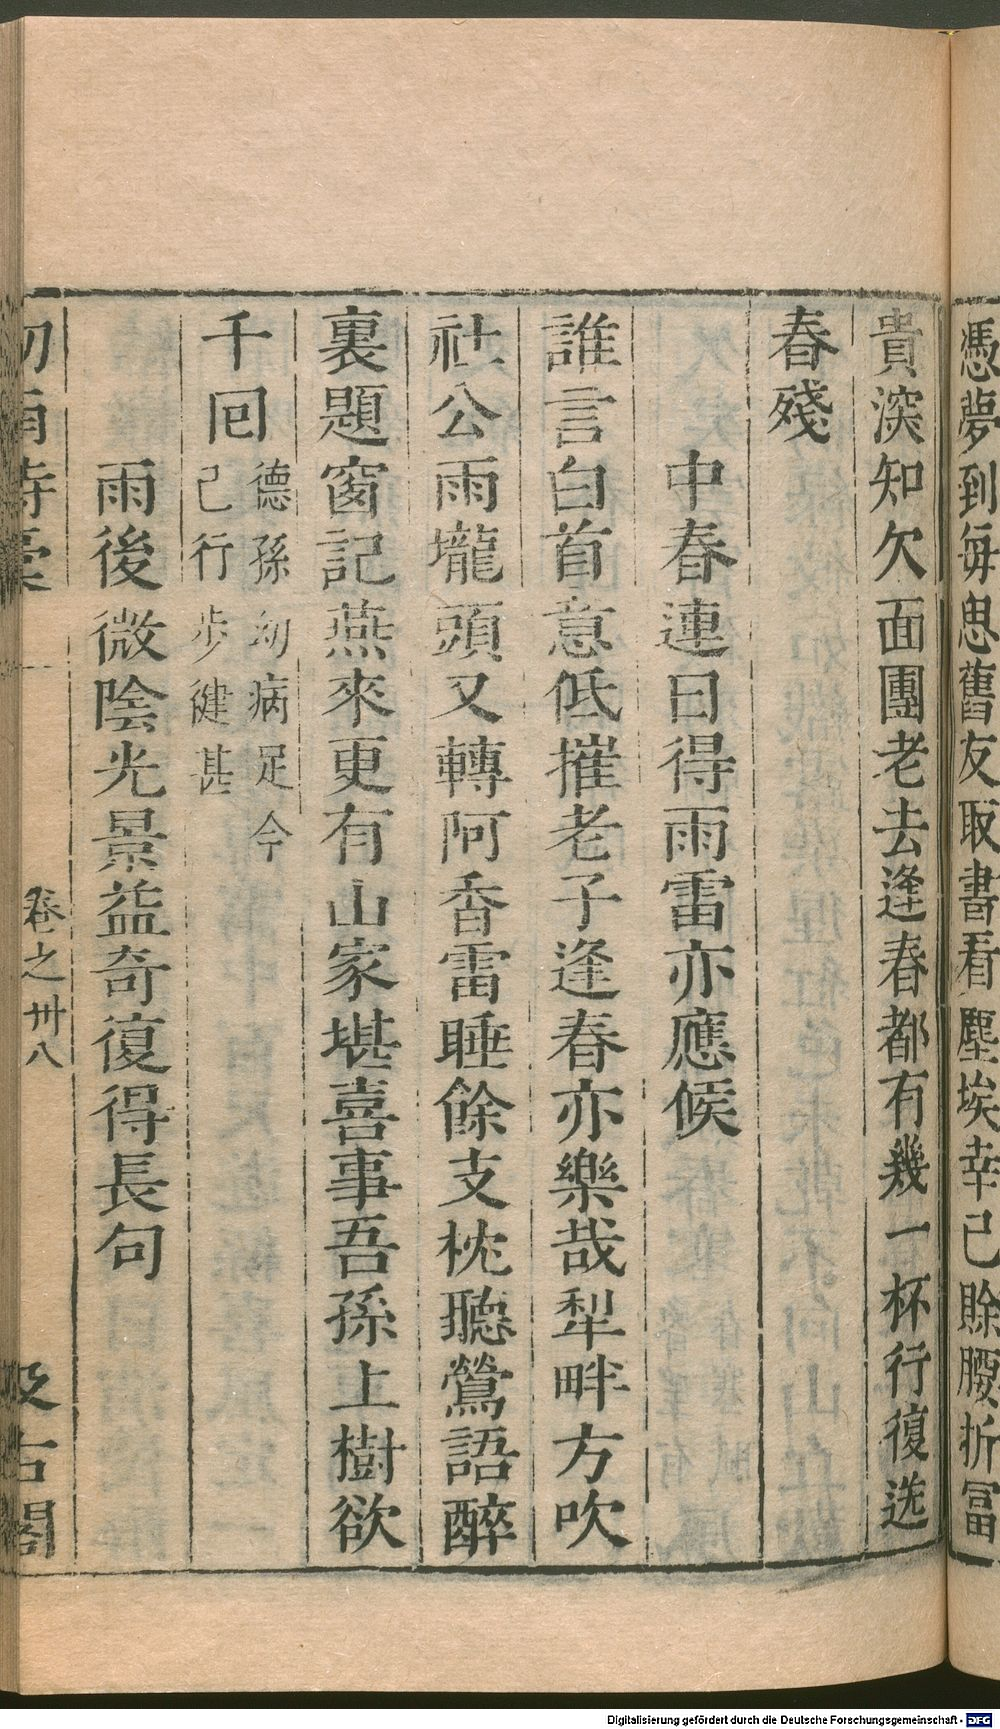 憑夢到每思舊友取書看塵埃幸已賒腰折冨
貴深知欠面團老去逢春都有幾一杯行復送
春殘
中春連日得雨雷亦應候
誰言白首意低摧老子逢春亦樂哉犁畔方吹
社公雨壠頭又轉阿香雷睡餘支枕聽鶯語醉
裏題窗記燕來更有山家堪喜事吾孫上樹欲
千回
德孫幼病足今
已行步健甚
雨後微陰光景益奇復得長句
劒南詩稾
卷之卅八
汲古閣
Digitalisierung gefördert durch die Deutsche Forschungsgemeinschaft - DFG